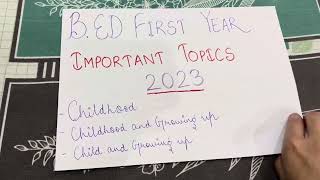 B.ED FIRST YEAR
IMPORTANT TOPICS
2023
- Childhood
- Childhood and Growing up
- Child and Growing up